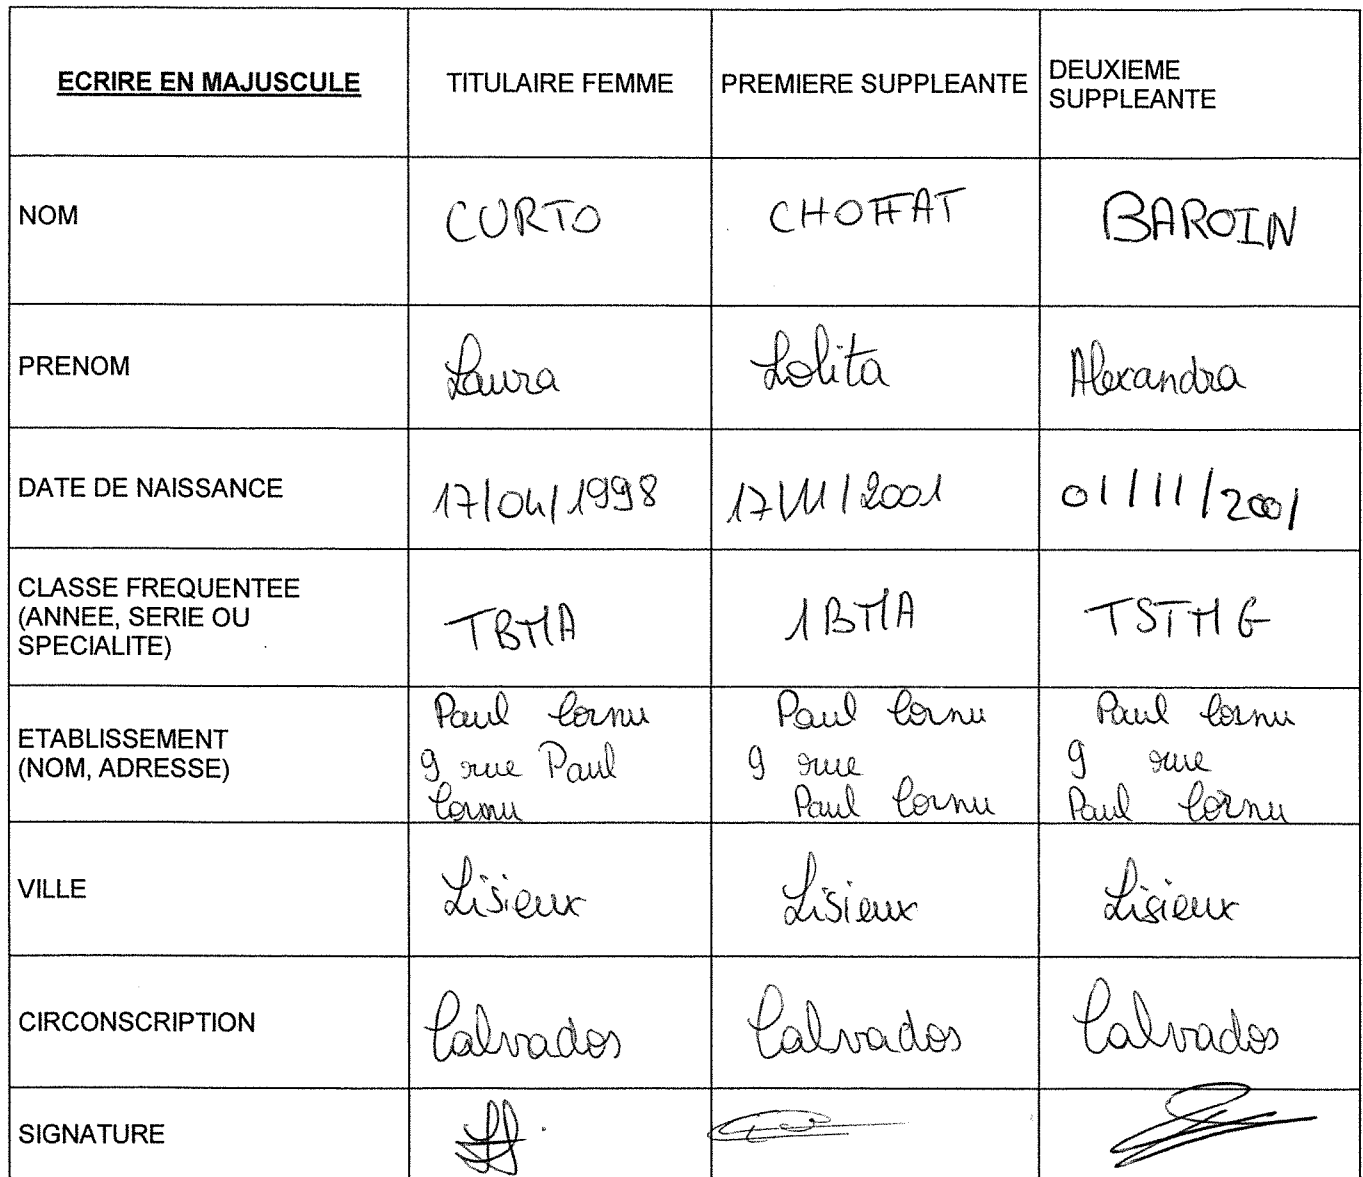 ECRIRE EN MAJUSCULE TITULAIRE FEMME PREMIERE SUPPLEANTE DEUXIEME SUPPLEANTE
NOM CURTO CHOFFAT BAROIN
PRENOM Laura Lolita Alexandra
DATE DE NAISSANCE 17/04/1998 17/11/2001 01/11/2001
CLASSE FREQUENTEE
(ANNEE, SERIE OU
SPECIALITE) TBMA 1BMA TSTMG
ETABLISSEMENT
(NOM, ADRESSE)
Paul Cornu
9 rue Paul
Cornu
Paul Cornu
9 rue
Paul Cornu
Paul Cornu
9 rue
Paul Cornu
VILLE Lisieux Lisieux Lisieux
CIRCONSCRIPTION Calvados Calvados Calvados
SIGNATURE